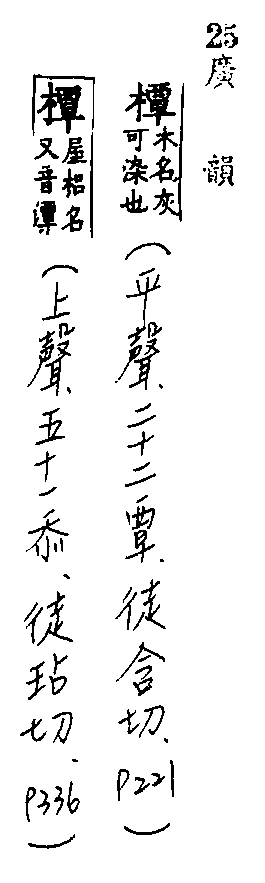 25 廣韻
橝木名灰可染也(平聲、二十二覃、徒含切、P221)
橝屋梠名又音潭(上聲、五十一忝、徒玷切、P336)